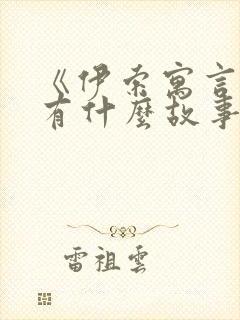 《伊索寓言
有什麼故事
雷祖雲